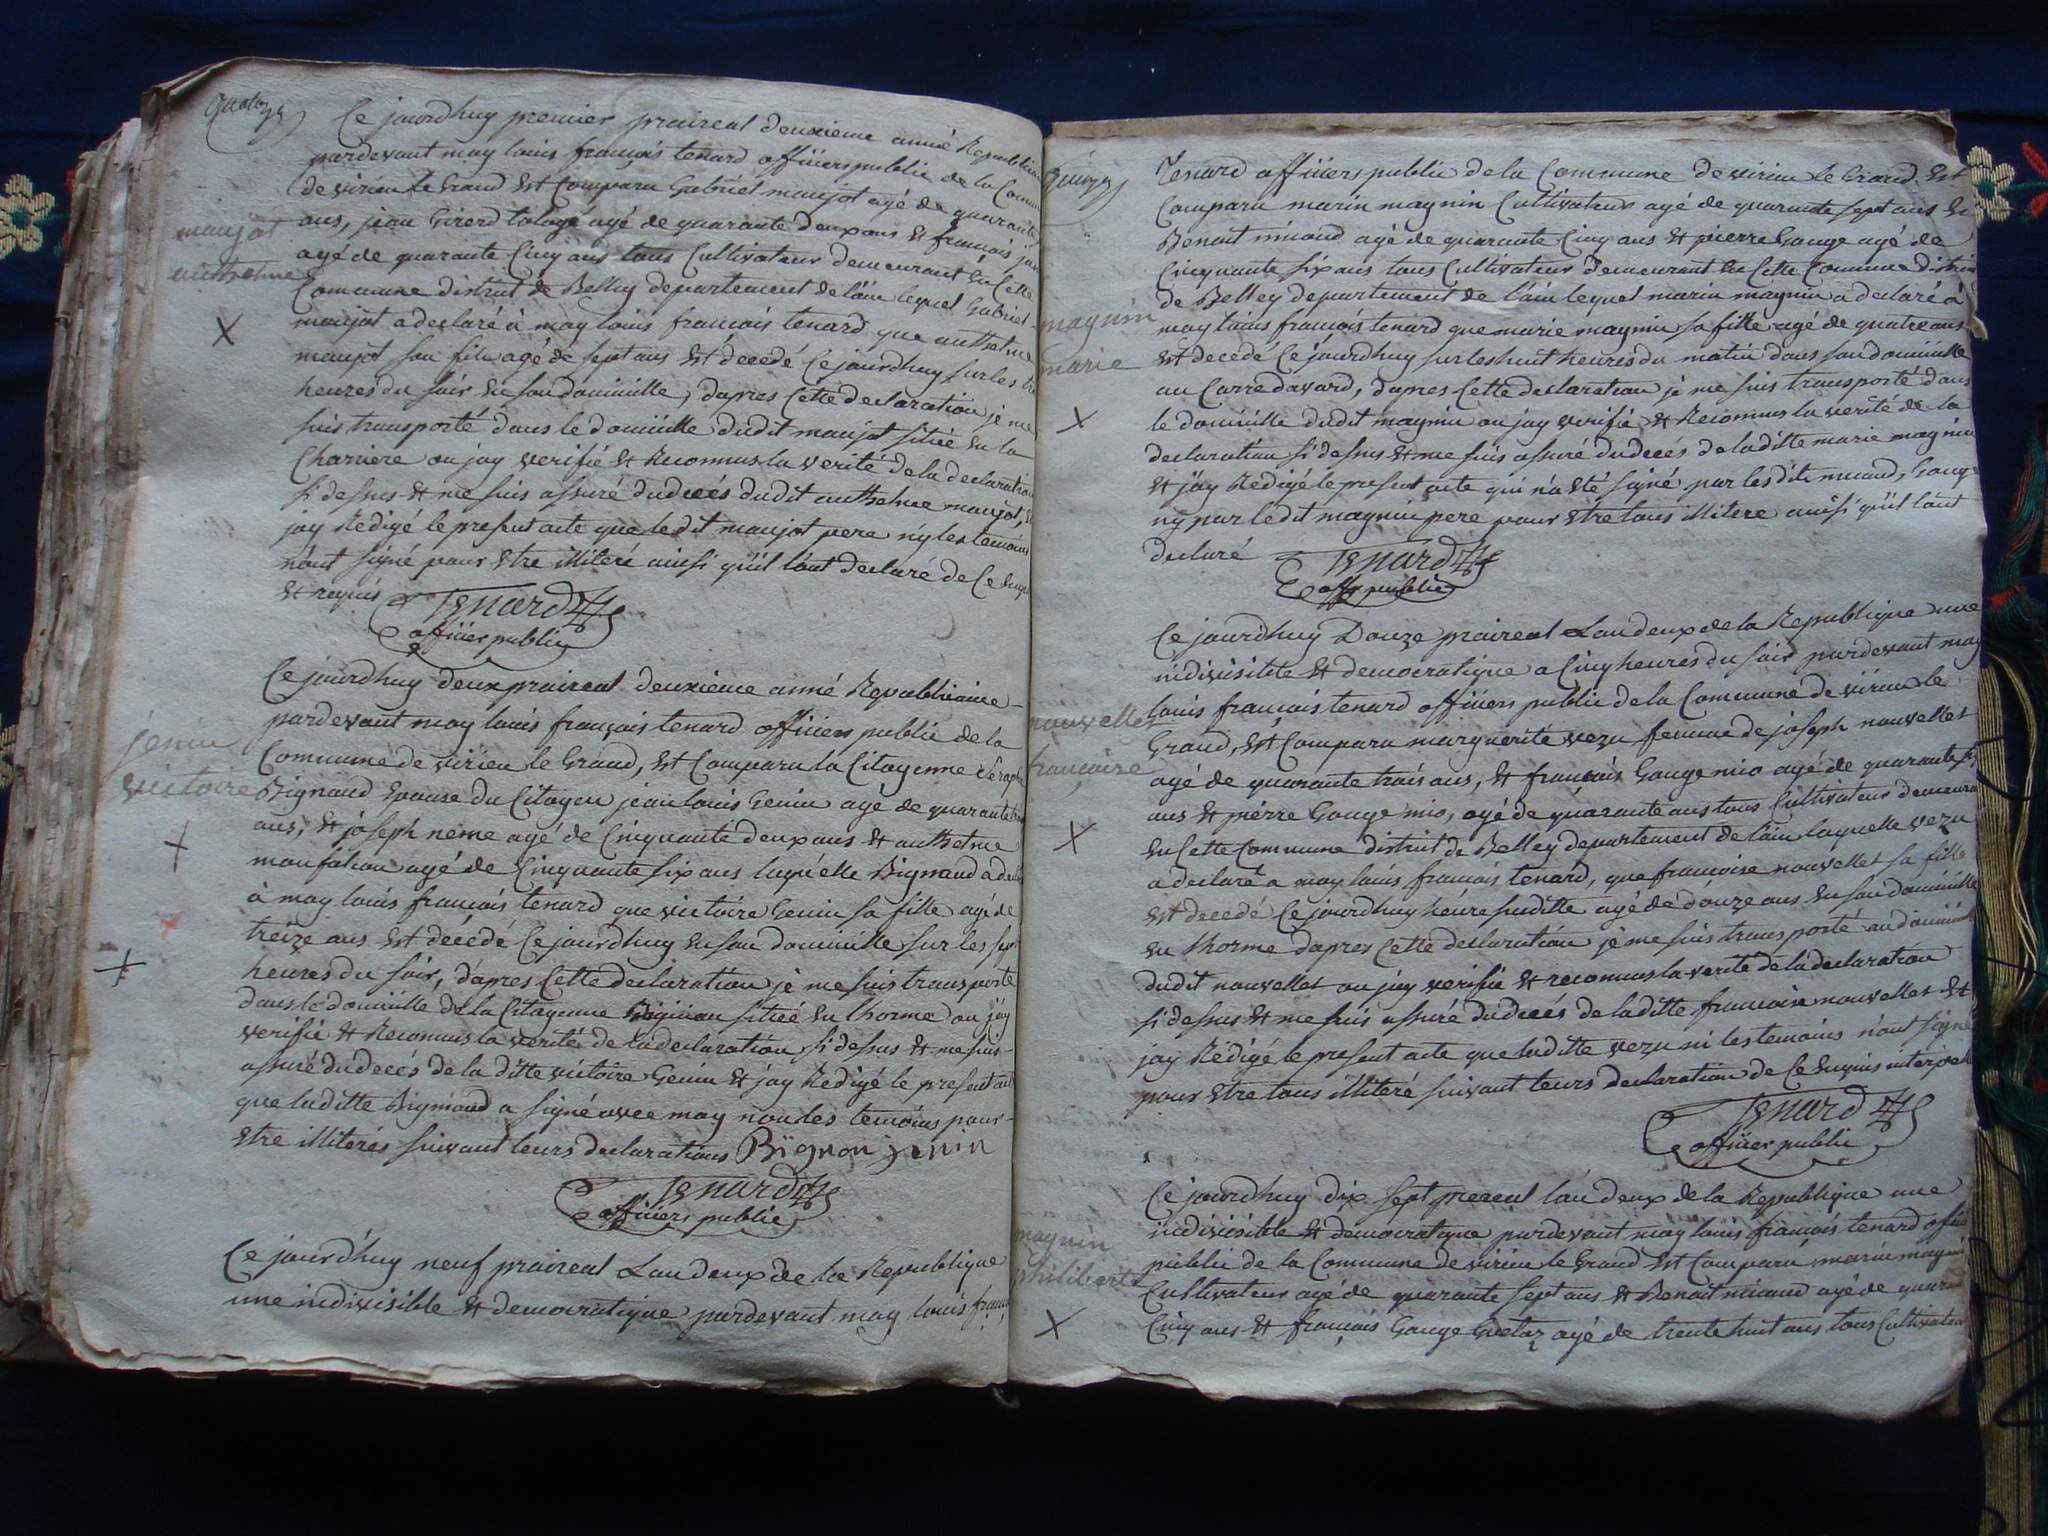 Ce jourdhuy premier praireal deuxieme anné Republi
pardevant moy louis françois tenard officiers public de la Comm
de virieu le Grand Est Comparu Gabriel maujot agé de quarante
ans, jean Girerd agé de quarante deux ans & françois
agé de quarante Cinq ans tous Cultivateur demeurant En Cette
Commune district de Belley departement de lain lequel Gabriel
maujot a declaré à moy louis françois tenard que anthelme
maujot son fils agé de sept ans Est décedé Ce jourdhuy sur les
heures du soir En son domicille, dapres Cette declaration je me
suis transporté dans le domicille dudit maujot sitüé En la
Charriere ou jay verifié & Reconnus la verité de la declaration
si dessus & me suis assuré du decés dudit anthelme maujot, &
jay Redigé le present acte que ledit maujot pere n'y les temoins
n'ont signé pour Etre illiteré ainsi qu'il l'ont declaré de Ce Enquis
& requis
Tenard
officier public
maujot
anthelme
Ce jourdhuy deux praireal deuxieme anné Republicaine
pardevant moy louis françois tenard officiers public de la
Commune de virieu le Grand, Est Comparu la Citoyenne
Bignaud Epouse du Citoyen jean louis Genin agé de quarante
ans, & joseph néme agé de Cinquante deux ans & anthelme
monfalcon agé de Cinquante six ans laquelle Bignaud a de
à moy louis françois tenard que victoire Genin sa fille agé de
treize ans Est décedé Ce jourdhuy En son domicille sur les sept
heures du soir, dapres Cette declaration je me suis transporté
dans le domicille de la Citoyenne sitüé En lhorme ou jay
verifié & Reconnus la verité de la declaration si dessus & me suis
assuré du decés de la ditte victoire Genin & jay Redigé le present act
que laditte Bignaud a signé avec moy non les temoins pour
Etre illiterés suivant leurs declarations Bignon jenin
Tenard
officiers public
jenin
victoire
Ce jourd'huy neuf praireal Lan deux de la Republique
une indivisible & democratique pardevant moy louis franç
Tenard officiers public de la Commune de virieu le Grand Est
Comparu marin magnin Cultivateur agé de quarante sept ans &
Benoit miand agé de quarante Cinq ans & pierre Gouge agé de
Cinquante six ans tous Cultivateur demeurant En Cette Commune distri
de Belley departement de lain lequel marin magnin a declaré à
moy louis françois tenard que marie magnin sa fille agé de quatre ans
Est decedé Ce jourdhuy sur les huit heures du matin dans son domicille
au davard, dapres Cette declaration je me suis transporté dans
le domicille dudit magnin ou jay verifié & Reconnus la verité de la
declaration si dessus & me suis assuré du decés de la ditte marie magnin
& jay Redigé le present acte qui n'a Eté signé par les dits miand, Gouge
ny par ledit magnin pere pour Etre tous illiteré ainsi qu'il l'ont
declaré
Tenard
offr public
magnin
marie
Ce jourdhuy Douze praireal Lan deux de la Republique une
indivisible & democratique a Cinq heures du soir pardevant moy
louis françois tenard officiers public de la Commune de virieu le
Grand, Est Comparu marguerite vezu femme de joseph nouvellet
agé de quarante trois ans, & françois Gouge mio agé de quarante
ans & pierre Gouge mio, agé de quarante ans tous Cultivateur demeura
En Cette Commune district de Belley departement de lain laquelle vezu
a declaré a moy louis françois tenard, que françoise nouvellet sa fille
Est decedé Ce jourdhuy heure suditte agé de douze ans En son domicille
En lhorme dapres Cette declaration je me suis transporté au domicille
dudit nouvellet ou jay verifié & reconnus la verité de la declaration
si dessus & me suis assuré du decés de la ditte françoise nouvellet &
jay Rédigé le present acte que laditte vezu ni les temoins n'ont signé
pour Etre tous illiteré suivant leurs declaration de Ce Enquis interpel
Tenard
officier public
nouvellet
françoise
Ce jourdhuy dix sept prereal lan deux de la Republique une
indivisible & democratique pardevant moy louis françois tenard offici
public de la Commune de virieu le Grand Est Comparu marin magnin
Cultivateur agé de quarante sept ans & Benoit miand agé de quaran
Cinq ans & françois Gouge agé de trente huit ans tous Cultivateur
magnin
philiberte